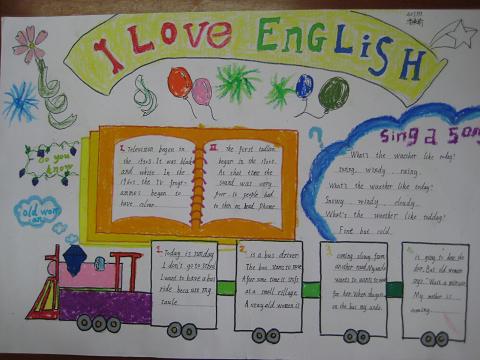 I LOVE ENGLISH
Do you
know
I. Television began in
the 1920s. It was black
and white. In the
began to
have colour
II. The first radios
began in the 1920s.
At that time the
sound was very
poor. So people had
to their on head phones
?
sing a song
What's the weather like today?
Sunny, windy, rainy.
What's the weather like today?
Snowy, windy, cloudy.
What's the weather like today?
Fine but cold.
old wom
an
1. Today is sunday
I don't go to school
I want to have a bus
ride because my
2. is a bus driver
The bus starts to move
After some time is stops
at a small village.
A very old women is
3. coming slowly from
another road. My uncle
wants to wants to wait
for her. When she gets
on the bus my uncle
4. is going to close the
door. But old woman
says: "Wait a minute
My mother is
coming